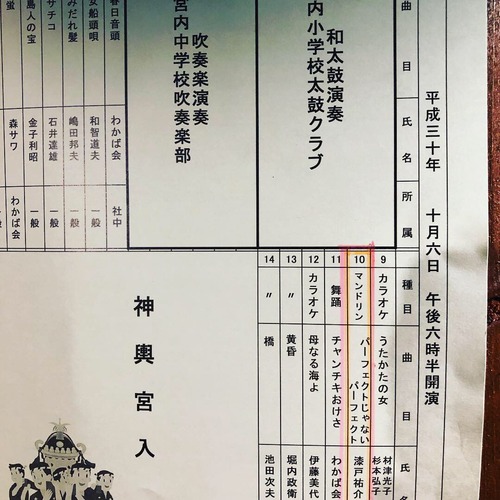 平成三十年　十月六日　午後六時半開演
曲目
氏名
所属
和太鼓演奏
内小学校太鼓クラブ
吹奏楽演奏
宮内中学校吹奏楽部
春日音頭 わかば会 社中
女船頭唄 和智道夫 一般
みだれ髪 嶋田邦夫 一般
サチコ 石井達雄 一般
島人の宝 金子利昭 一般
蛍 森サワ わかば会
種目 曲目 氏
9 カラオケ うたかたの女 材津光子 杉本弘子
10 マンドリン パーフェクトじゃない パーフェクト 漆戸祐介
11 舞踊 チャンチキおけさ わかば会
12 カラオケ 母なる海よ 伊藤美代
13 〃 黄昏 堀内政衛
14 〃 橋 池田次夫
神輿宮入